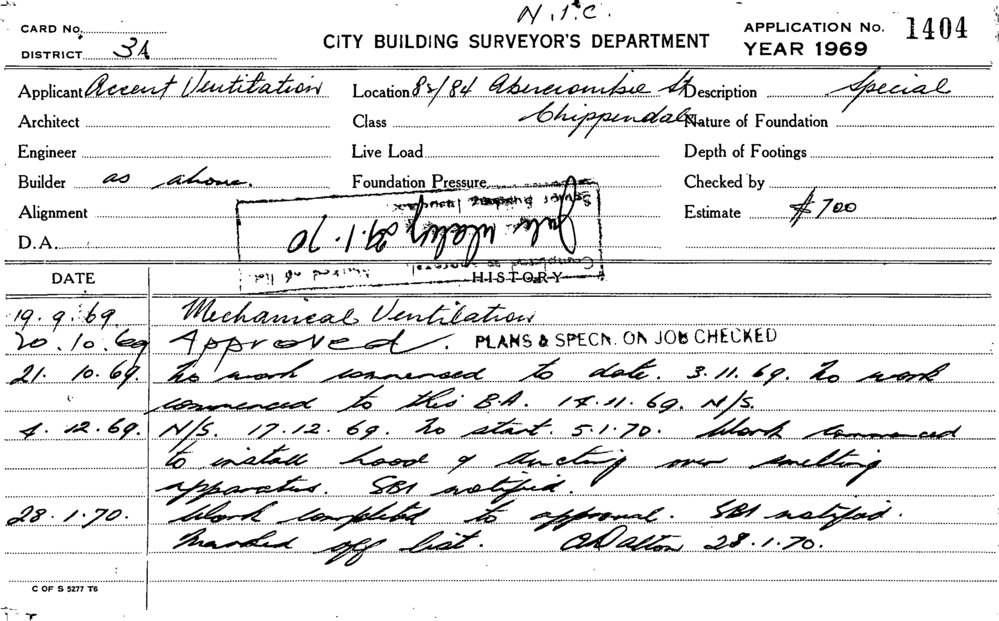 N.I.C.
CARD No.
APPLICATION No. 1404
DISTRICT 3A
CITY BUILDING SURVEYOR'S DEPARTMENT
YEAR 1969
Applicant Accent Ventilation Location 82/84 Abercrombie St Description Special
Architect Class Chippendale Nature of Foundation
Engineer Live Load Depth of Footings
Builder as above. Foundation Pressure Checked by
Alignment Estimate $700
D.A. 29.1.70
DATE HISTORY
19.9.69 Mechanical Ventilation
20.10.69 Approved. PLANS & SPECN. ON JOB CHECKED
21.10.69. No work commensed to date. 3.11.69. No work
commenced to this B.A. 14.11.69. N/S.
4.12.69. N/S. 17.12.69. No start. 5.1.70. Work commenced
to install hood & ducting over smelting
apparatus. SBI notified.
28.1.70. Work completed to approval. SBI notified.
Marked off list. C Dalton 28.1.70.
C OF S 5277 T6